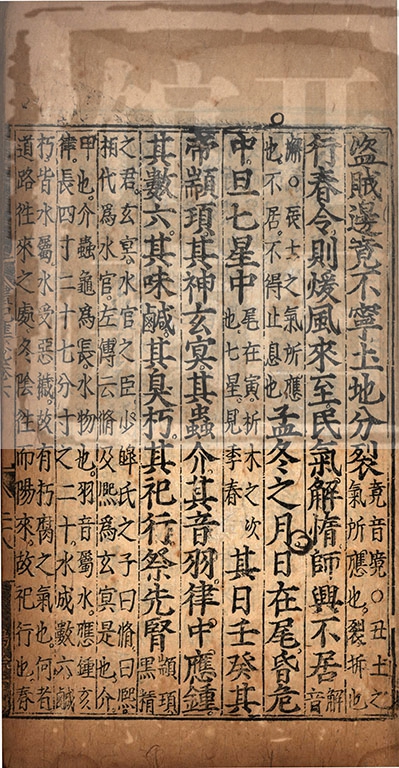 盜賊邊竟不寧土地分裂竟音境○丑土之氣所應也裂坼也
行春令則煖風來至民氣解惰師興不居解音
懈○辰土之氣所應也不居不得止息也孟冬之月日在尾昏危
中旦七星中尾在寅析木之次也七星見季春其日壬癸其
帝顓頊其神玄冥其蟲介其音羽律中應鍾
其數六其味鹹其臭朽其祀行祭先腎顓頊黑精
之君玄冥水官之臣少皥氏之子曰脩曰熙
相代爲水官左傳云脩及熙爲玄冥是也介
甲也介蟲龜爲長水物也羽音屬水應鍾亥
律長四寸二十七分寸之二十水成數六鹹
朽皆水屬水受惡穢故有朽腐之氣也行者
道路往來之處冬陰往而陽來故祀行也春